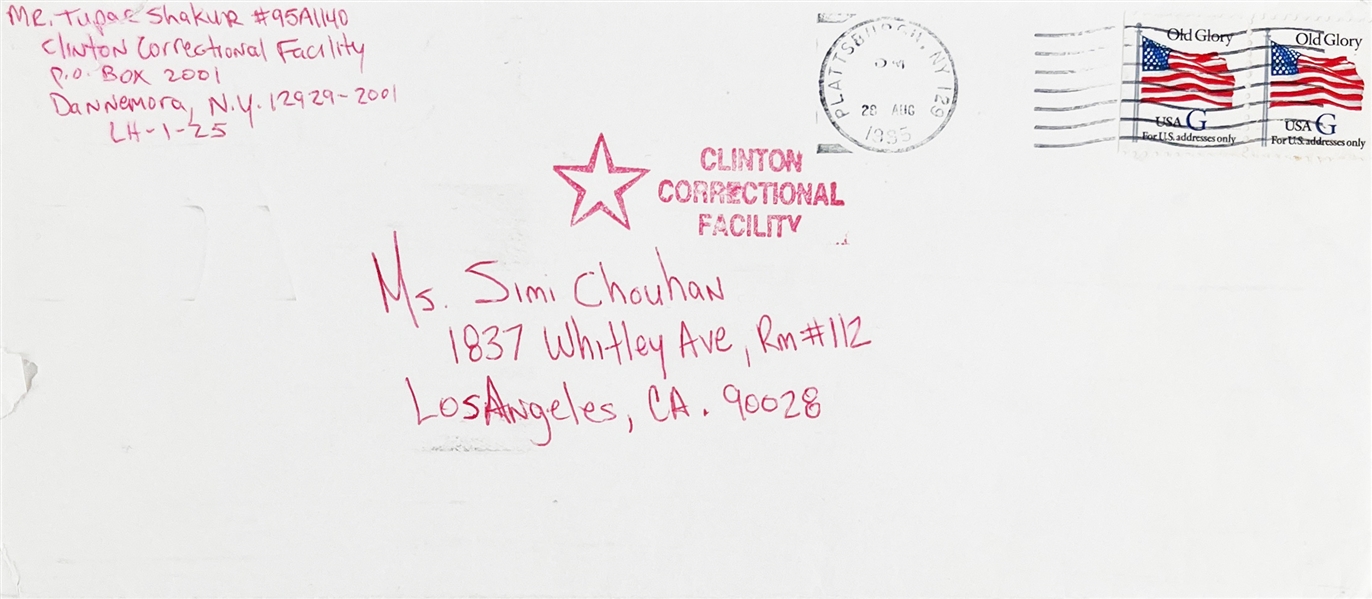 Mr. Tupac Shakur #95A1140
Clinton Correctional Facility
P.O. Box 2001
Dannemora, N.Y. 12929-2001
LH-1-25
PLATTSBURGH, NY 129
PM
28 AUG
1995
Old Glory
USA G
For U.S. addresses only
Old Glory
USA G
For U.S. addresses only
CLINTON
CORRECTIONAL
FACILITY
Ms. Simi Chouhan
1837 Whitley Ave, Rm#112
Los Angeles, CA. 90028